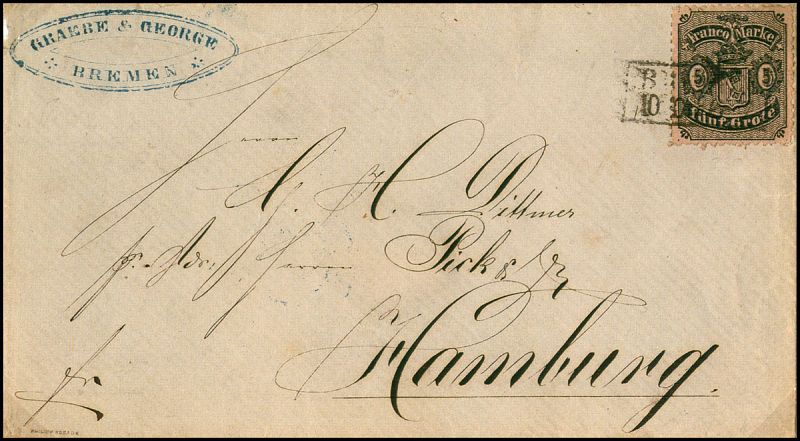 GRAEBE & GEORGE
BREMEN
Franco Marke
5 5
Fünf Grote
B
10
Herrn
H. Dittmer
pr. Adr. Herren Pick &
Hamburg.
fr